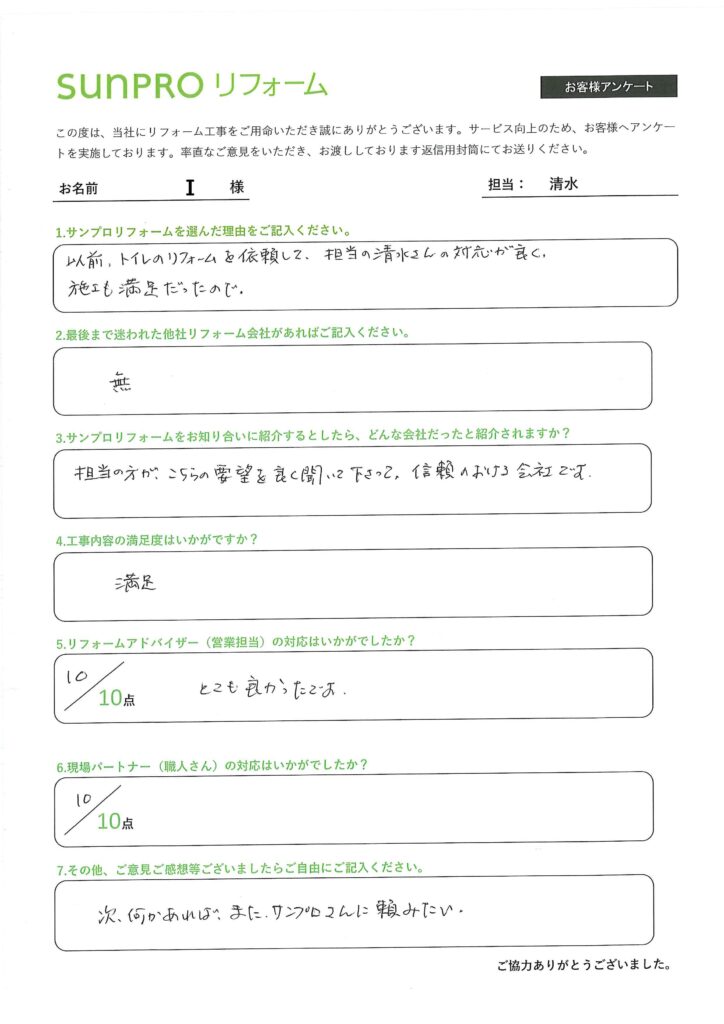 SUNPRO リフォーム
お客様アンケート
この度は、当社にリフォーム工事をご用命いただき誠にありがとうございます。サービス向上のため、お客様へアンケー
トを実施しております。率直なご意見をいただき、お渡ししております返信用封筒にてお送りください。
お名前 I 様
担当： 清水
1.サンプロリフォームを選んだ理由をご記入ください。
以前、トイレのリフォームを依頼して、担当の清水さんの対応が良く、
施工も満足だったので。
2.最後まで迷われた他社リフォーム会社があればご記入ください。
無
3.サンプロリフォームをお知り合いに紹介するとしたら、どんな会社だったと紹介されますか？
担当の方が、こちらの要望を良く聞いて下さって、信頼のおける会社です.
4.工事内容の満足度はいかがですか？
満足
5.リフォームアドバイザー（営業担当）の対応はいかがでしたか？
10/10点 とても良かったです.
6.現場パートナー（職人さん）の対応はいかがでしたか？
10/10点
7.その他、ご意見ご感想等ございましたらご自由にご記入ください。
次、何かあれば、また、サンプロさんに頼みたい.
ご協力ありがとうございました。